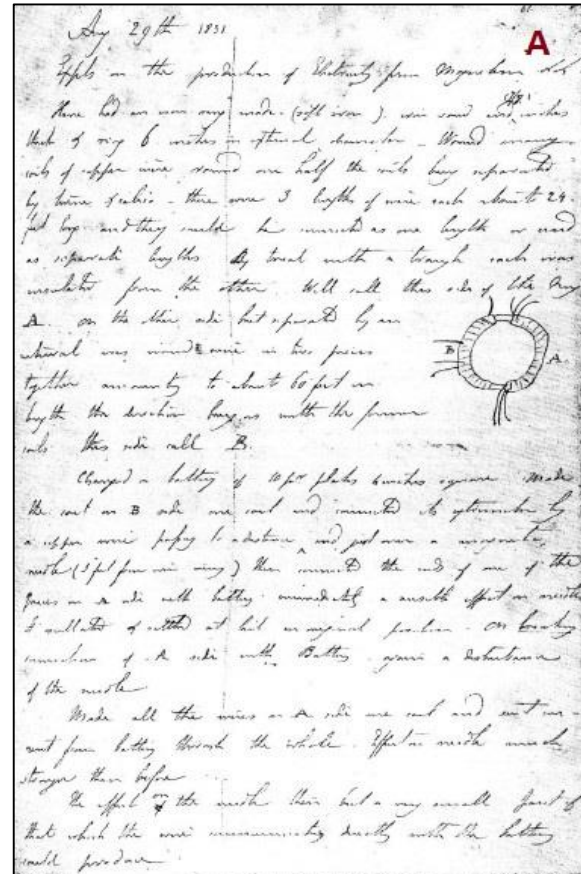 A
Aug 29th 1831
Expts on the production of Electricity from Magnetism &c &c
Have had an iron ring made (soft iron), iron round and 7/8 inches
thick & ring 6 inches in external diameter. Wound many
coils of copper wire round one half the coils being separated
by twine & calico - there were 3 lengths of wire each about 24
feet long and they could be connected as one length or used
as separate lengths By trial with a trough each was
insulated from the other. Will call this side of the ring
A. on the other side but separated by an
interval was wound wire in two pieces
together amounting to about 60 feet in
length the direction being as with the former
coils this side call B.
B A
Charged a battery of 10 pr plates 4 inches square Made
the coil on B side one coil and connected its extremities by
a copper wire passing to a distance and just over a magnetic
needle (3 feet from iron ring) then connected the ends of one of the
pieces on A side with battery immediately a sensible effect on needle
It oscillated & settled at last in original position. On breaking
connection of A side with Battery again a disturbance
of the needle
Made all the wires on A side one coil and sent cur-
rent from battery through the whole. Effect on needle much
stronger than before
The effect on the needle then but a very small part of
that which the wire communicating directly with the battery
could produce